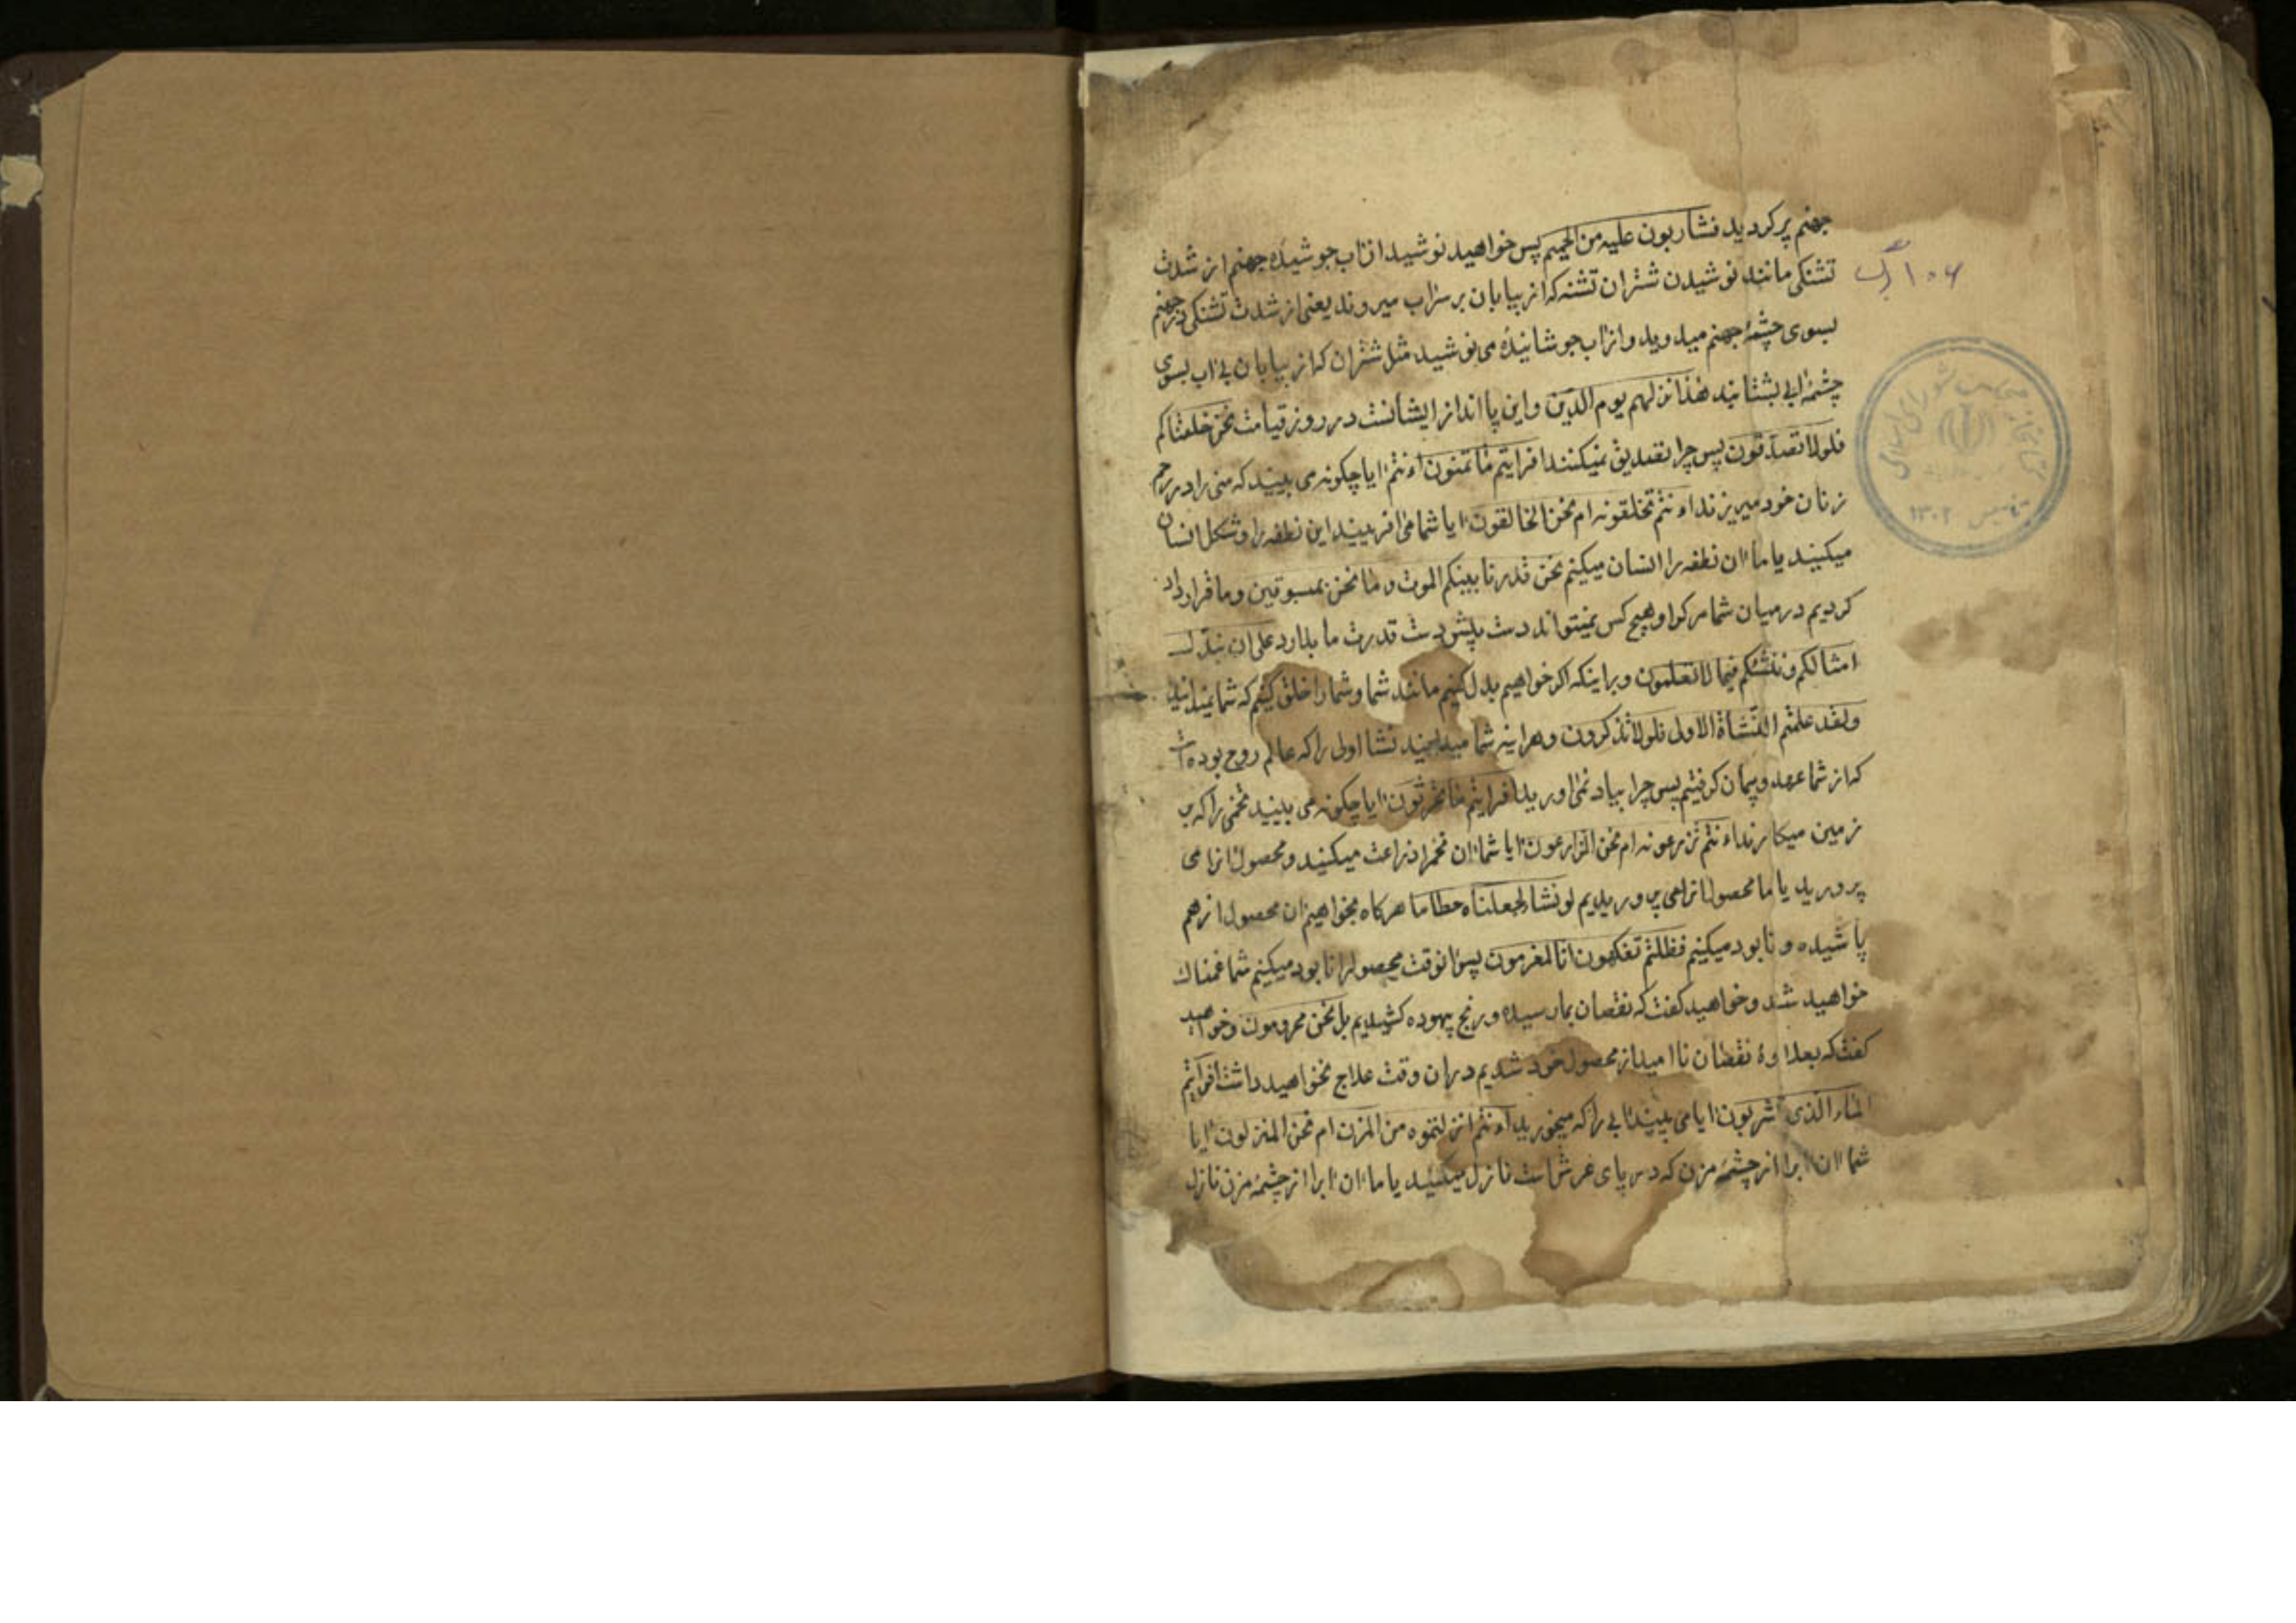 جهنم پر کردید فشاربون علیه من الحمیم پس خواهید نوشید از اب جوشیده جهنم از شدت
تشنکی مانند نوشیدن شتران تشنه که از بیابان بر سراب میروند یعنی از شدت تشنکی در جهنم
بسوی چشمهٔ جهنم میدوید و از اب جوشانیده می نوشید مثل شتران که از بیابان بی اب بسوی
چشمهٔ ابی بشتابند هذا نزلهم یوم الدین و این پا انداز ایشانست در روز قیامت نحن خلقناکم
فلولا تصدقون پس چرا تصدیق نمیکنند افرایتم ما تمنون ءانتم ایا چکونه می بینید که منی را در رحم
زنان خود میریزند ءانتم تخلقونه ام نحن الخالقون ایا شما می افرینید این نطفه را و شکل انسان
میکنید یا ما ان نطفه را انسان میکنیم نحن قدرنا بینکم الموت و ما نحن بمسبوقین و ما قرار داد
کردیم در میان شما مرک را و هیچ کس نمیتواند دست پیش دست قدرت ما بدارد علی ان نبدل
امثالکم و ننشئکم فیما لا تعلمون و بر اینکه اکر خواهیم بدل کنیم مانند شما و شما را خلق کنیم که شما نمیدانید
ولقد علمتم النشاة الاولی فلولا تذکرون و هراینه شما میدانید نشا اولی را که عالم روح بوده است
که از شما عهد و پیمان کرفتیم پس چرا بیاد نمی اورید افرایتم ما تحرثون ایا چکونه می بینید تخمی را که بر
زمین میکارند ءانتم تزرعونه ام نحن الزارعون ایا شما ان تخم را زراعت میکنید و محصول انرا می
پرورید یا ما محصول انرا می پروریدیم لو نشا لجعلناه حطاما هرکاه بخواهیم ان محصول از هم
پاشیده و نابود میکنیم فظلتم تفکهون انا لمغرمون پس انوقت محصول را نابود میکنیم شما غمناک
خواهید شد و خواهید کفت که نقصان بما رسیده و رنج بیهوده کشیدیم بل نحن محرومون و خواهید
کفت که بعلاوهٔ نقصان نا امید از محصول خود شدیم در ان وقت علاج نخواهید داشت افرایتم
الماء الذی تشربون ایا می بینید ابی را که میخورید ءانتم انزلتموه من المزن ام نحن المنزلون ایا
شما ان ابرا از چشمهٔ مزن که در پای عرش است نازل میکنید یا ما ان ابرا از چشمهٔ مزن نازل
کتابخانه مجلس شورای اسلامی
۱۳۰۲